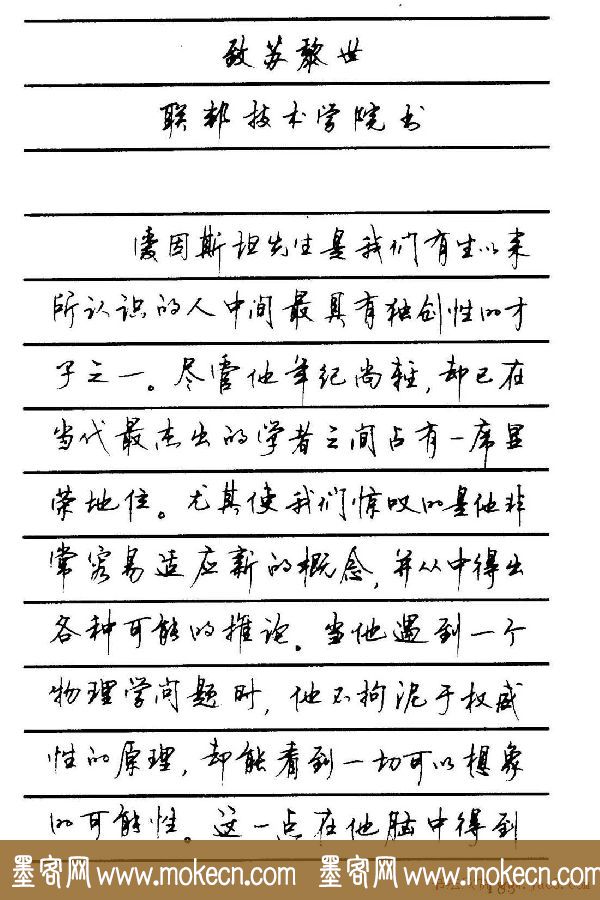 致苏黎世
联邦技术学院书
爱因斯坦先生是我们有生以来
所认识的人中间最具有独创性的才
子之一。尽管他年纪尚轻，却已在
当代最杰出的学者之间占有一席显
荣地位。尤其使我们惊叹的是他非
常容易适应新的概念，并从中得出
各种可能的推论。当他遇到一个
物理学问题时，他不拘泥于权威
性的原理，却能看到一切可以想象
的可能性。这一点在他脑中得到
墨客网 www.mokecn.com 墨客网 www.mokecn.com